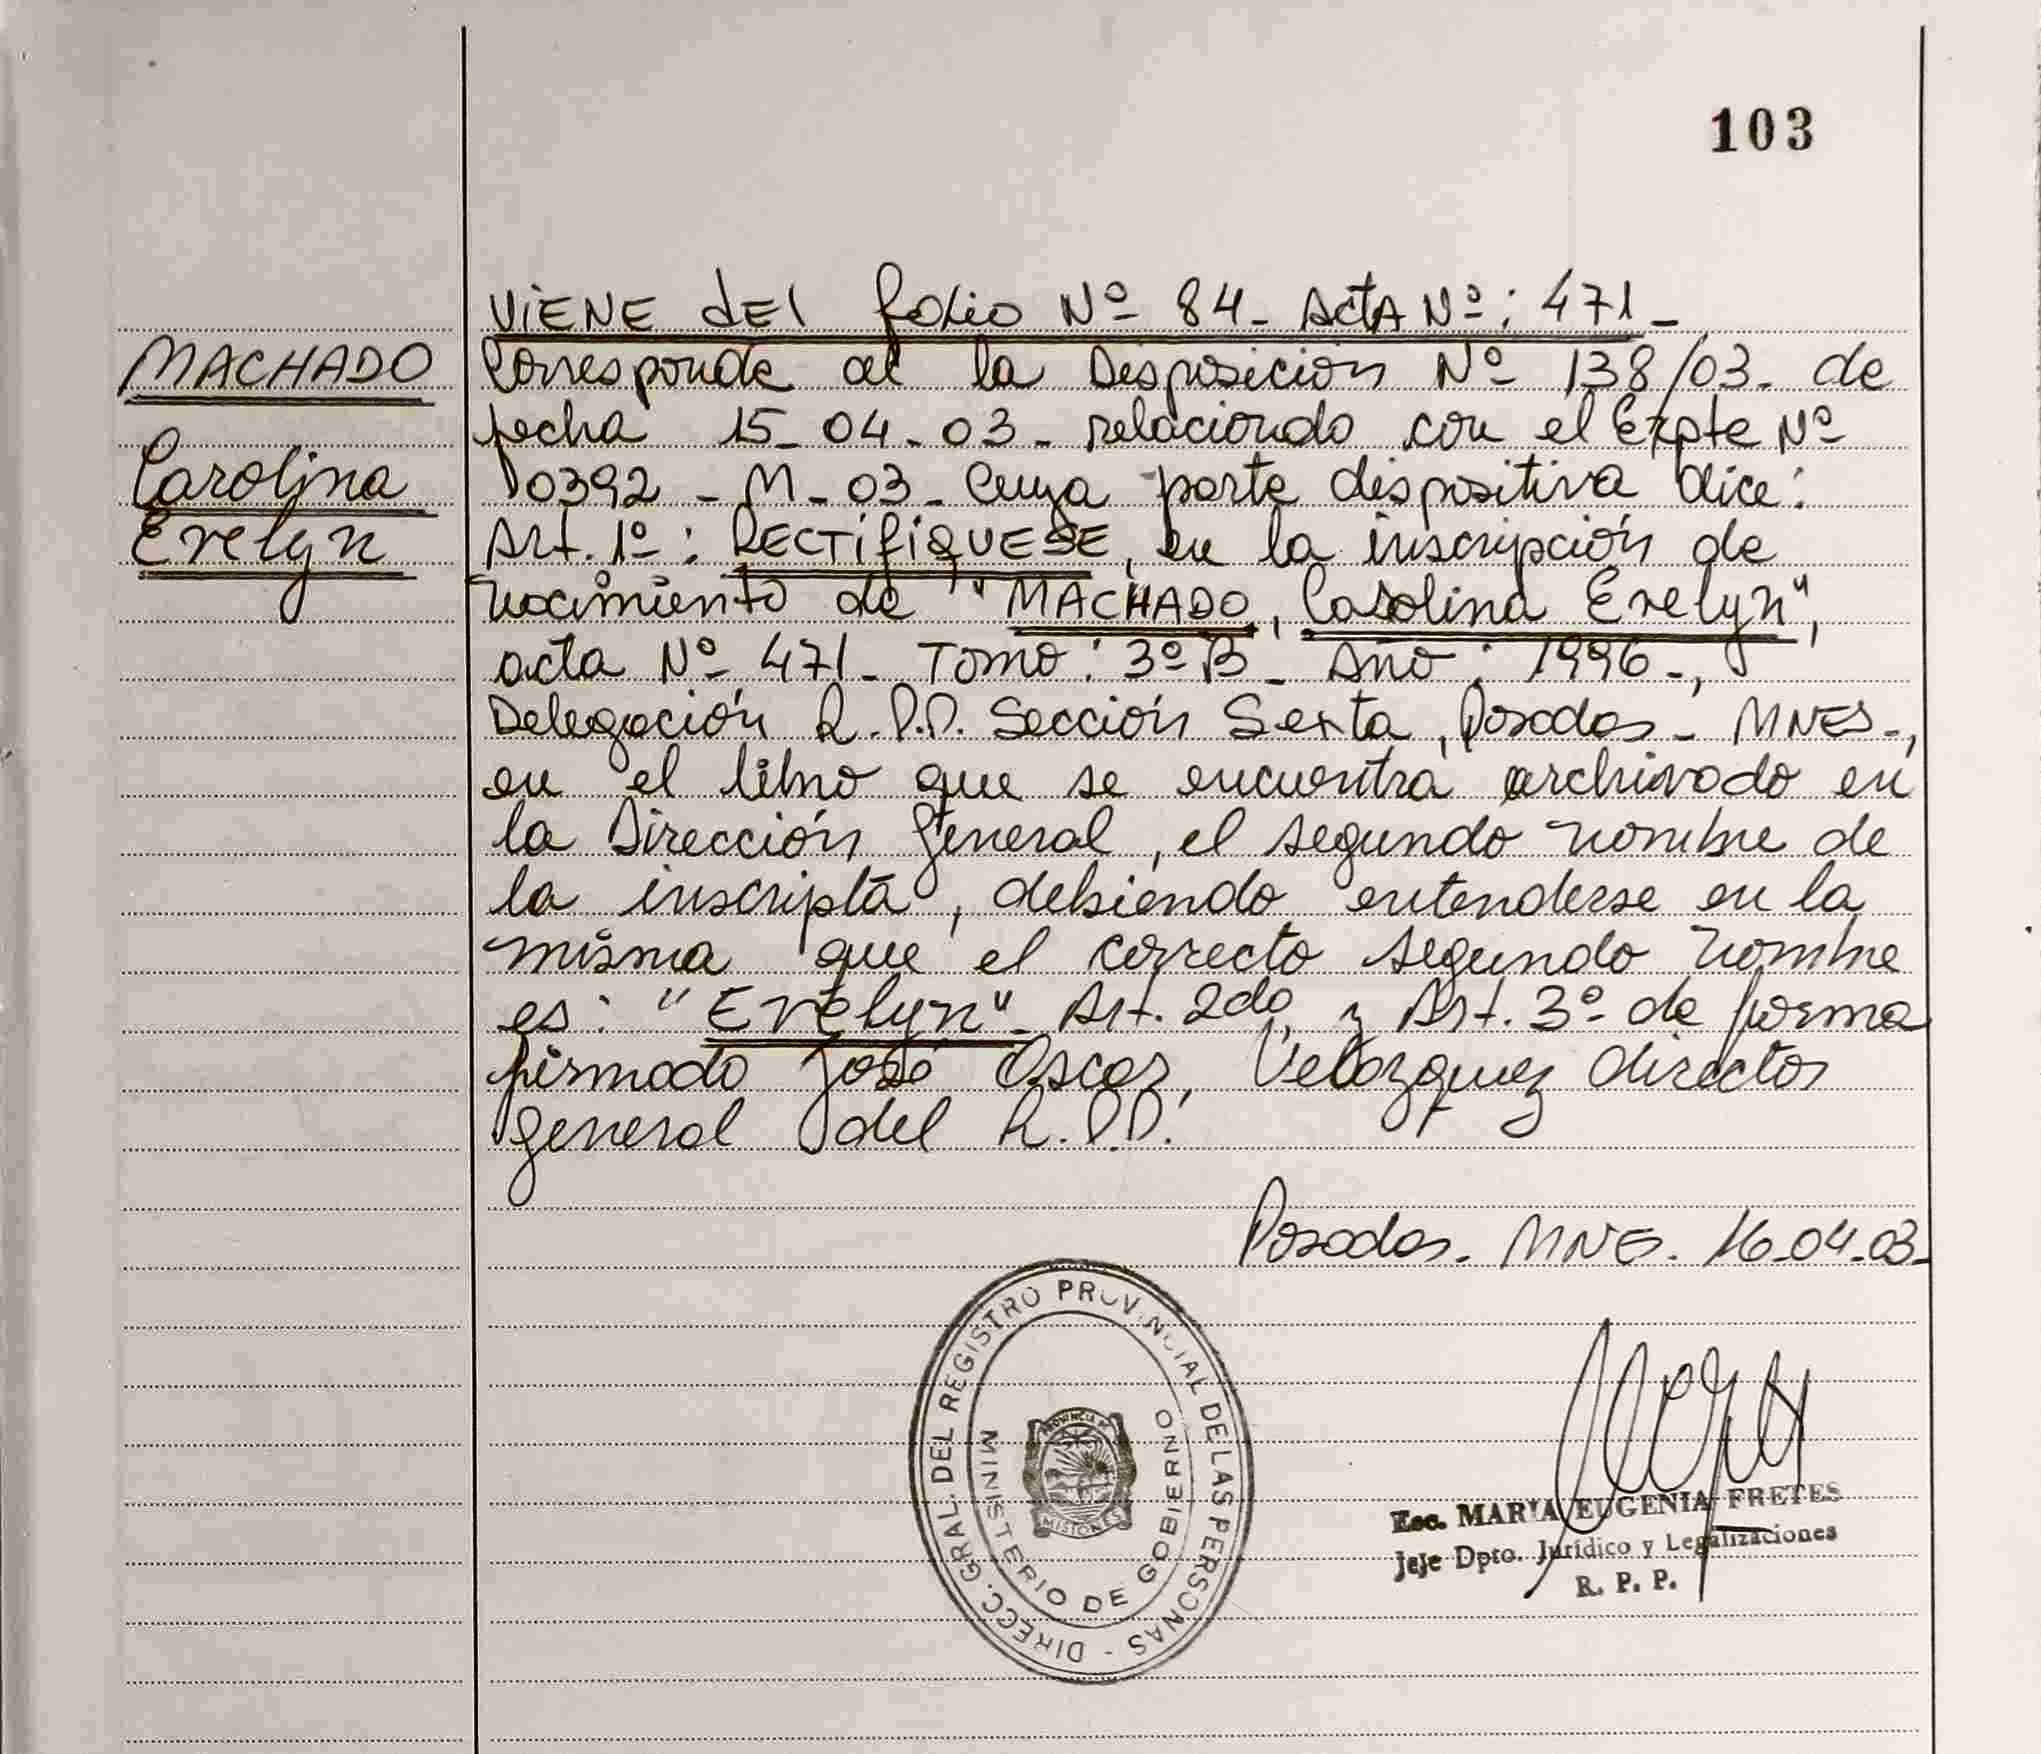 103
VIENE dEl folio Nº 84- ActA Nº: 471-
MACHADO
Carolina
Evelyn
Corresponde a la Disposición Nº 138/03- de
fecha 15-04-03- relacionado con el Expte Nº
00392-M-03- Cuya parte dispositiva dice:
Art. 1º: RECTIFIQUESE, en la inscripción de
nacimiento de "MACHADO, Carolina Evelyn",
acta Nº 471- Tomo: 3º B- Año: 1996-,
Delegación R.P.P. Sección Sexta, Posadas- MNES-,
en el libro que se encuentra archivado en
la Dirección General, el segundo nombre de
la inscripta, debiendo entenderse en la
misma que el correcto segundo nombre
es: "Evelyn"- Art. 2do, y Art. 3º de forma
firmado José Oscar, Velazquez director
general del R.P.P.
Posadas- MNES- 16-04-03-
DIRECC. GRAL. DEL REGISTRO PROVINCIAL DE LAS PERSONAS -
MINISTERIO DE GOBIERNO
PROVINCIA DE
MISIONES
Esc. MARIA EUGENIA FRETES
Jefe Dpto. Jurídico y Legalizaciones
R. P. P.